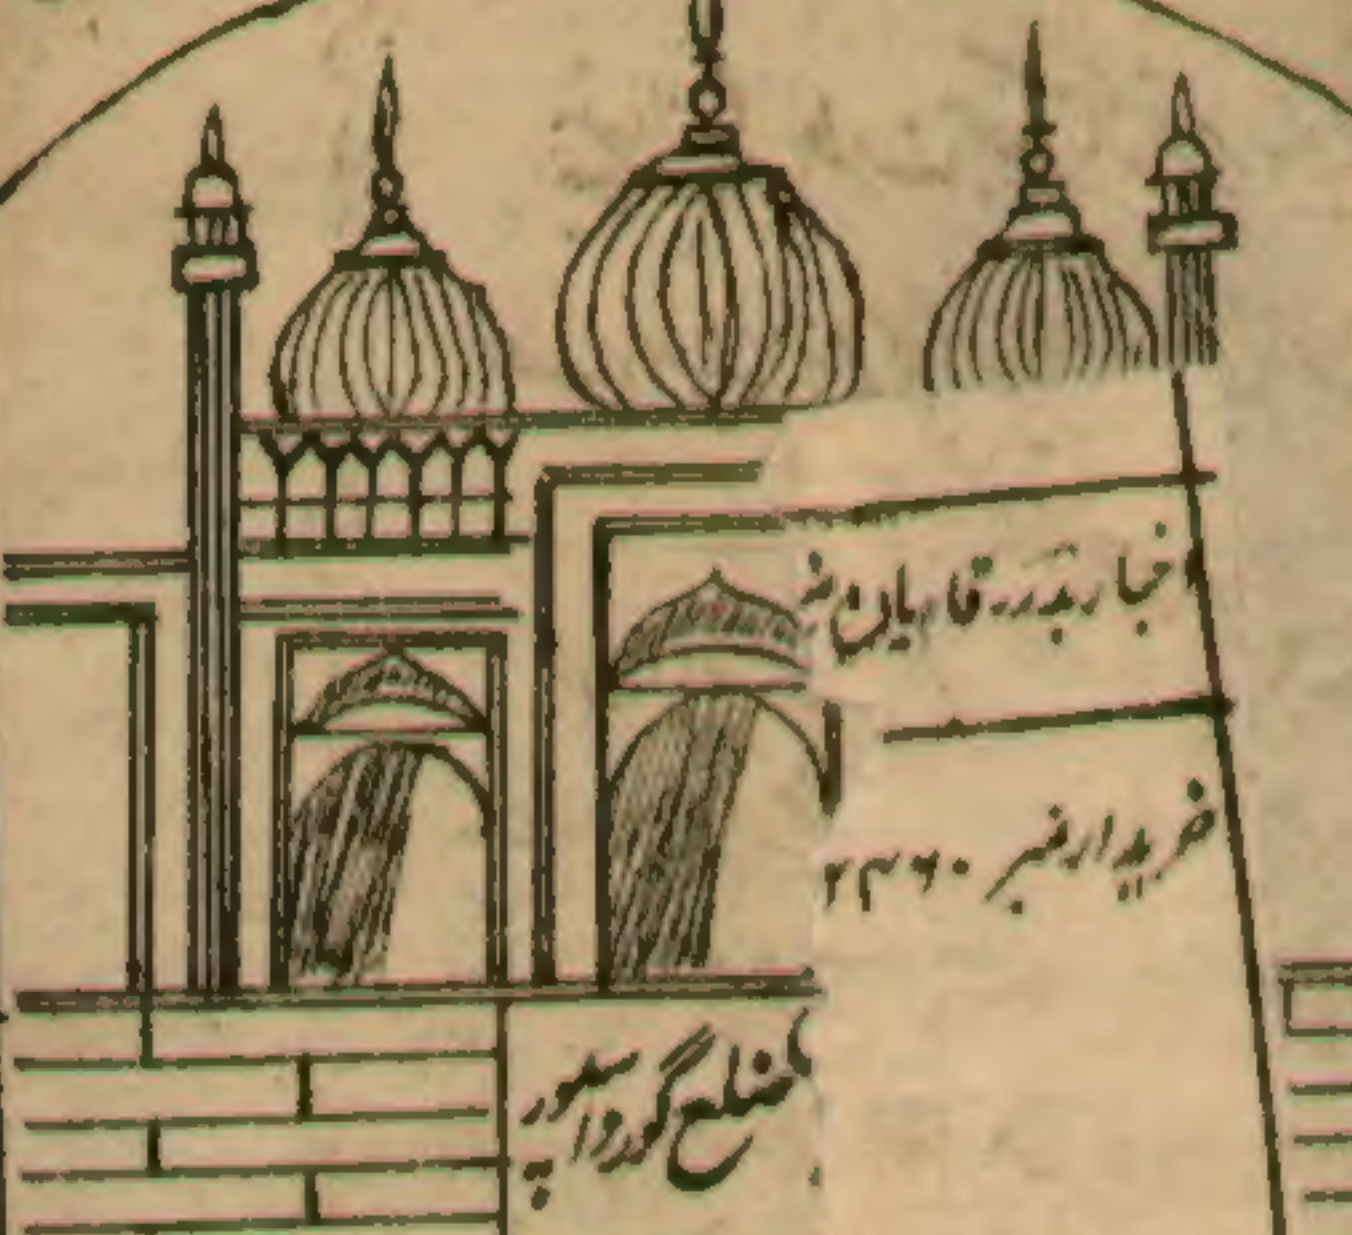 اخبار بدر قادیان نمبر
خریدار نمبر ۲۳۶۰
ضلع گورداسپور